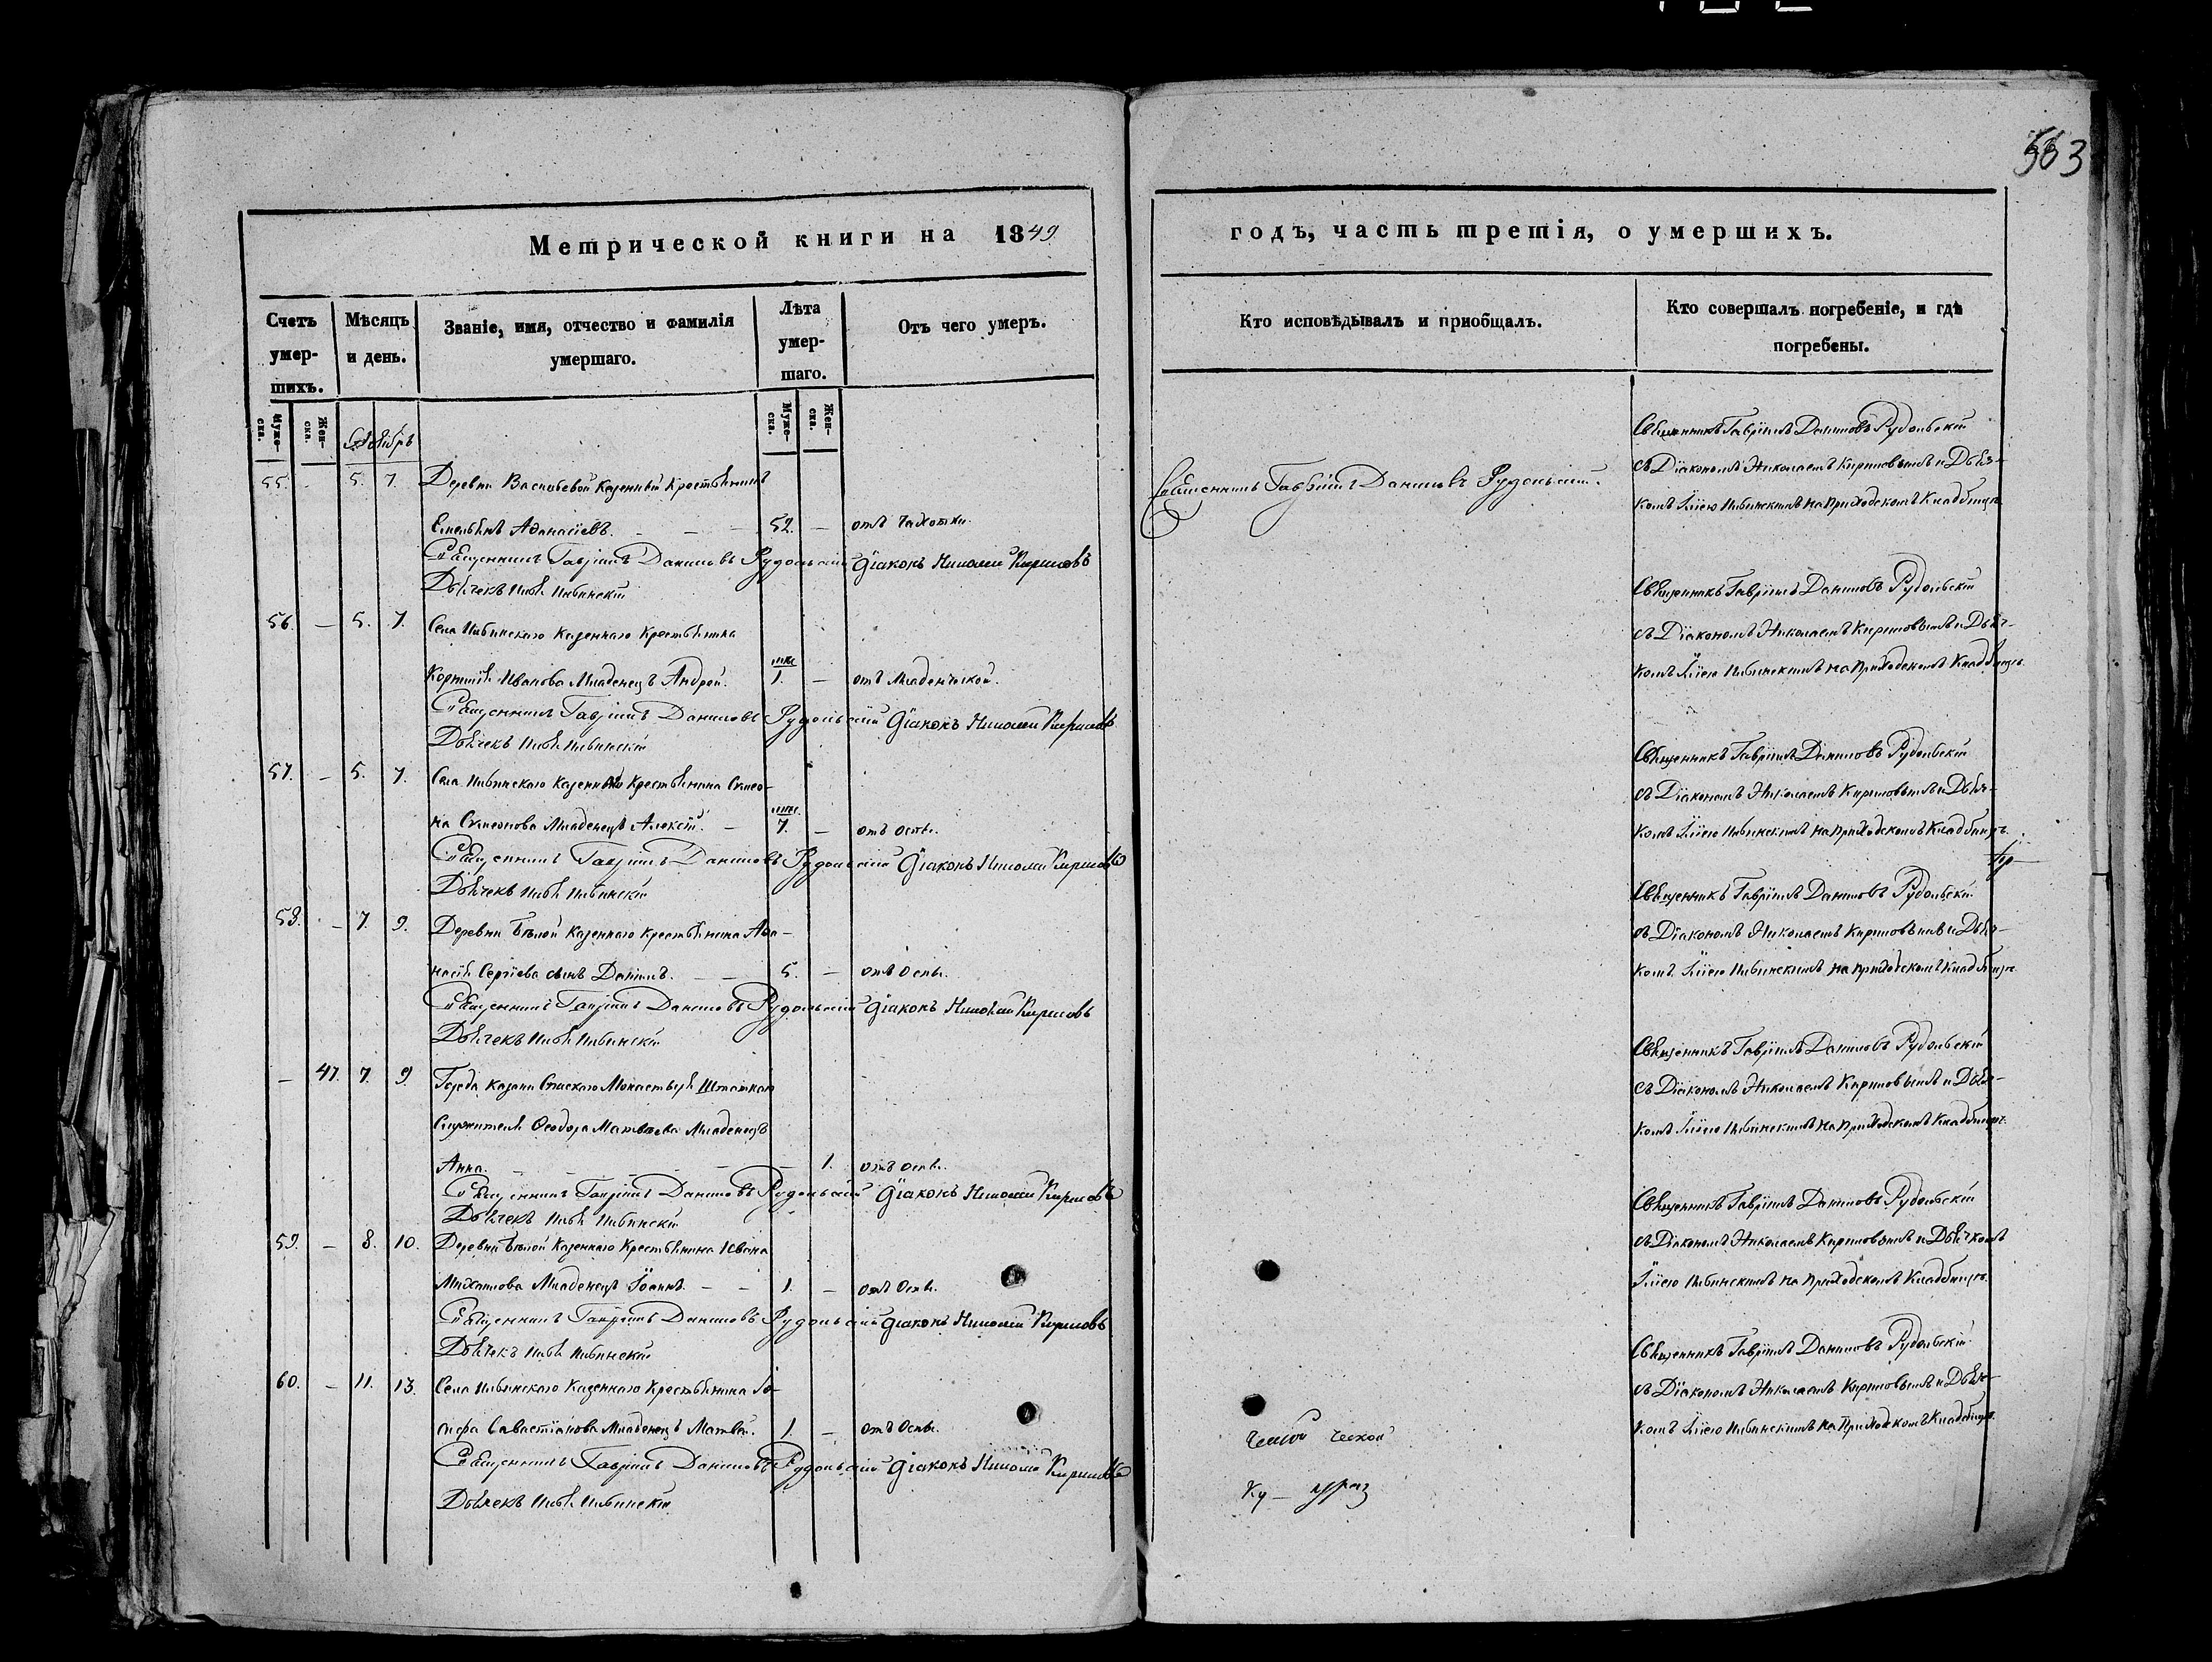 563
Метрической книги на 1849.
годъ, часть третія, о умершихъ.
Счетъ умер-шихъ.
Мѣсяцъ и день.
Званіе, имя, отчество и фамилія умершаго.
Лѣта умер-шаго.
Отъ чего умеръ.
Кто исповѣдывалъ и приобщалъ.
Кто совершалъ погребеніе, и гдѣ погребены.
Муже-ска. Жен-ска. Муже-ска. Жен-ска.
55. - 5. 7. Деревни Казенный Крестьянинъ
Емельянъ Аѳанасіевъ. 52. - отъ чахотки.
Священникъ Гавріилъ Даниловъ Рудольскій Діаконъ Николай Кириловъ
Дьячекъ Илія Ильинскій
Священникъ Гавріилъ Даниловъ Рудольскій.
Священникъ Гавріилъ Даниловъ Рудольскій
съ Діакономъ Николаемъ Кириловымъ и Дьяч-
комъ Иліею Ильинскимъ на приходскомъ кладбищѣ.
56. - 5. 7. Села Ильинскаго Казеннаго Крестьянина
Корнилія Иванова Младенецъ Андрей. 1. - отъ младенческой.
Священникъ Гавріилъ Даниловъ Рудольскій Діаконъ Николай Кириловъ
Дьячекъ Илія Ильинскій
Священникъ Гавріилъ Даниловъ Рудольскій
съ Діакономъ Николаемъ Кириловымъ и Дьяч-
комъ Иліею Ильинскимъ на приходскомъ кладбищѣ.
57. - 5. 7. Села Ильинскаго Казеннаго Крестьянина Симео-
на Симеонова Младенецъ Алексій. - 7. - отъ оспы.
Священникъ Гавріилъ Даниловъ Рудольскій Діаконъ Николай Кириловъ
Дьячекъ Илія Ильинскій
Священникъ Гавріилъ Даниловъ Рудольскій
съ Діакономъ Николаемъ Кириловымъ и Дьяч-
комъ Иліею Ильинскимъ на приходскомъ кладбищѣ.
58. - 7. 9. Деревни Бѣлой Казеннаго Крестьянина Аѳа-
насія Сергіева сынъ Даніилъ. 5. - отъ оспы.
Священникъ Гавріилъ Даниловъ Рудольскій Діаконъ Николай Кириловъ
Дьячекъ Илія Ильинскій
Священникъ Гавріилъ Даниловъ Рудольскій
съ Діакономъ Николаемъ Кириловымъ и Дьяч-
комъ Иліею Ильинскимъ на приходскомъ кладбищѣ.
- 47. 7. 9. Города Казани Спаскаго Монастыря Штатнаго
Служителя Ѳеодора Матвѣева Младенецъ
Анна. - 1. отъ оспы.
Священникъ Гавріилъ Даниловъ Рудольскій Діаконъ Николай Кириловъ
Дьячекъ Илія Ильинскій
Священникъ Гавріилъ Даниловъ Рудольскій
съ Діакономъ Николаемъ Кириловымъ и Дьяч-
комъ Иліею Ильинскимъ на приходскомъ кладбищѣ.
59. - 8. 10. Деревни Бѣлой Казеннаго Крестьянина Ивана
Михаилова Младенецъ Іоаннъ. 1. - отъ оспы.
Священникъ Гавріилъ Даниловъ Рудольскій Діаконъ Николай Кириловъ
Дьячекъ Илія Ильинскій
Священникъ Гавріилъ Даниловъ Рудольскій
съ Діакономъ Николаемъ Кириловымъ и Дьячкомъ
Иліею Ильинскимъ на приходскомъ кладбищѣ.
60. - 11. 13. Села Ильинскаго Казеннаго Крестьянина Іо-
сифа Савастіанова Младенецъ Матвѣй. 1. - отъ оспы.
Священникъ Гавріилъ Даниловъ Рудольскій Діаконъ Николай Кириловъ
Дьячекъ Илія Ильинскій
Священникъ Гавріилъ Даниловъ Рудольскій
съ Діакономъ Николаемъ Кириловымъ и Дьяч-
комъ Иліею Ильинскимъ на приходскомъ кладбищѣ.